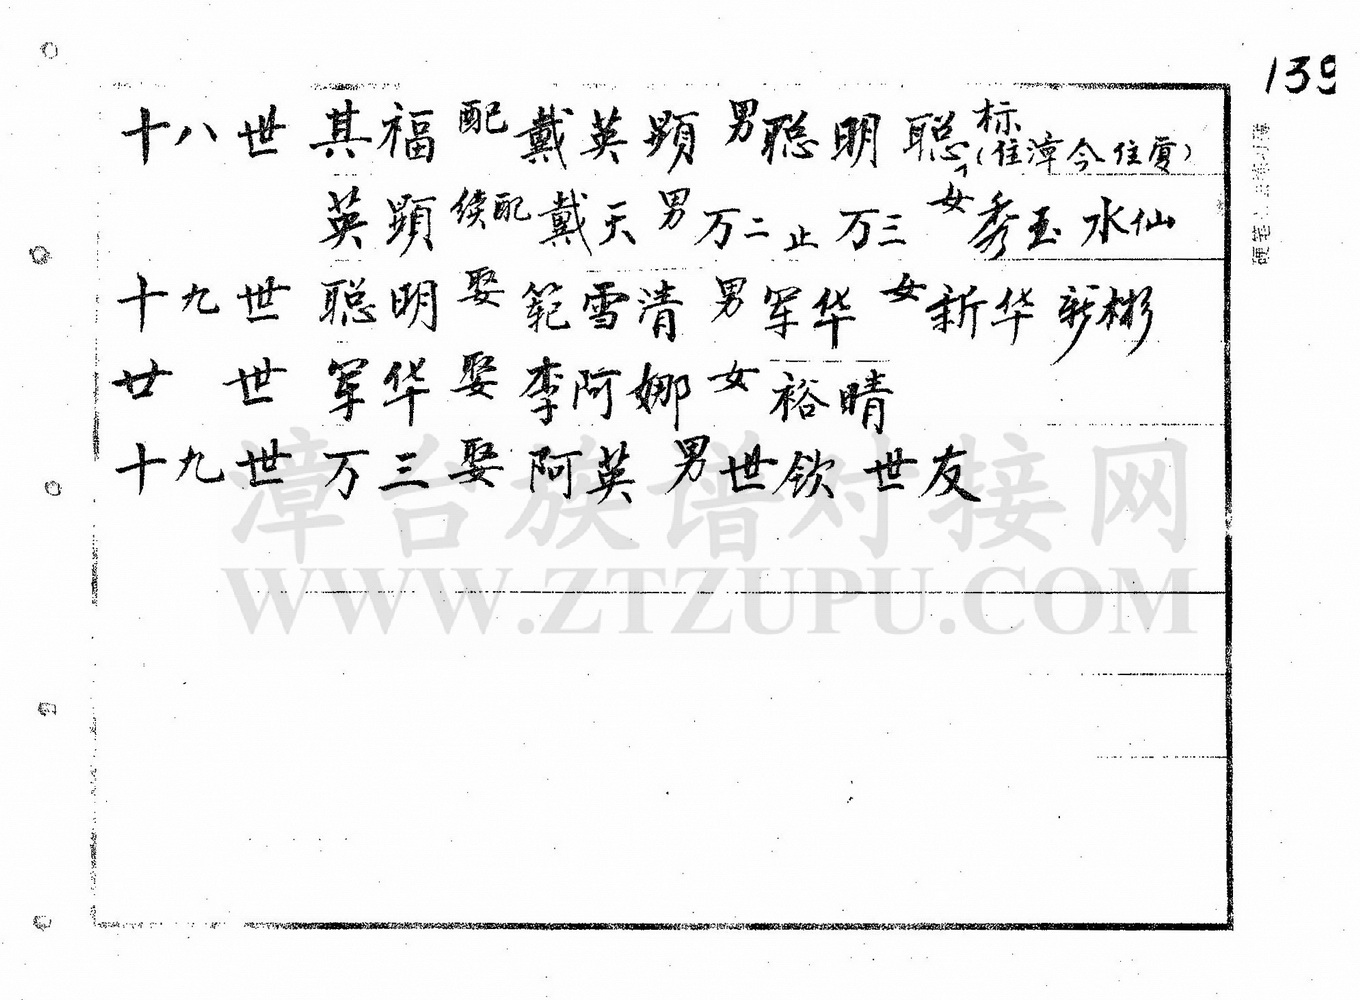 139
十八世 其福 配 戴英顕 男 聪明 聪标(住漳今住厦)
英顕 续配 戴天 男 万二 止 万三 女 秀玉 水仙
十九世 聪明 娶 範雪清 男 军华 女 新华 新彬
廿 世 军华 娶 李阿娜 女 裕晴
十九世 万三 娶 阿英 男 世钦 世友
漳台族谱对接网
WWW.ZTZUPU.COM